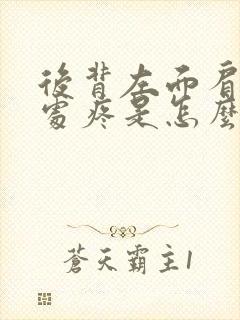 後背左而肩
處疼是怎麼
蒼天霸主1